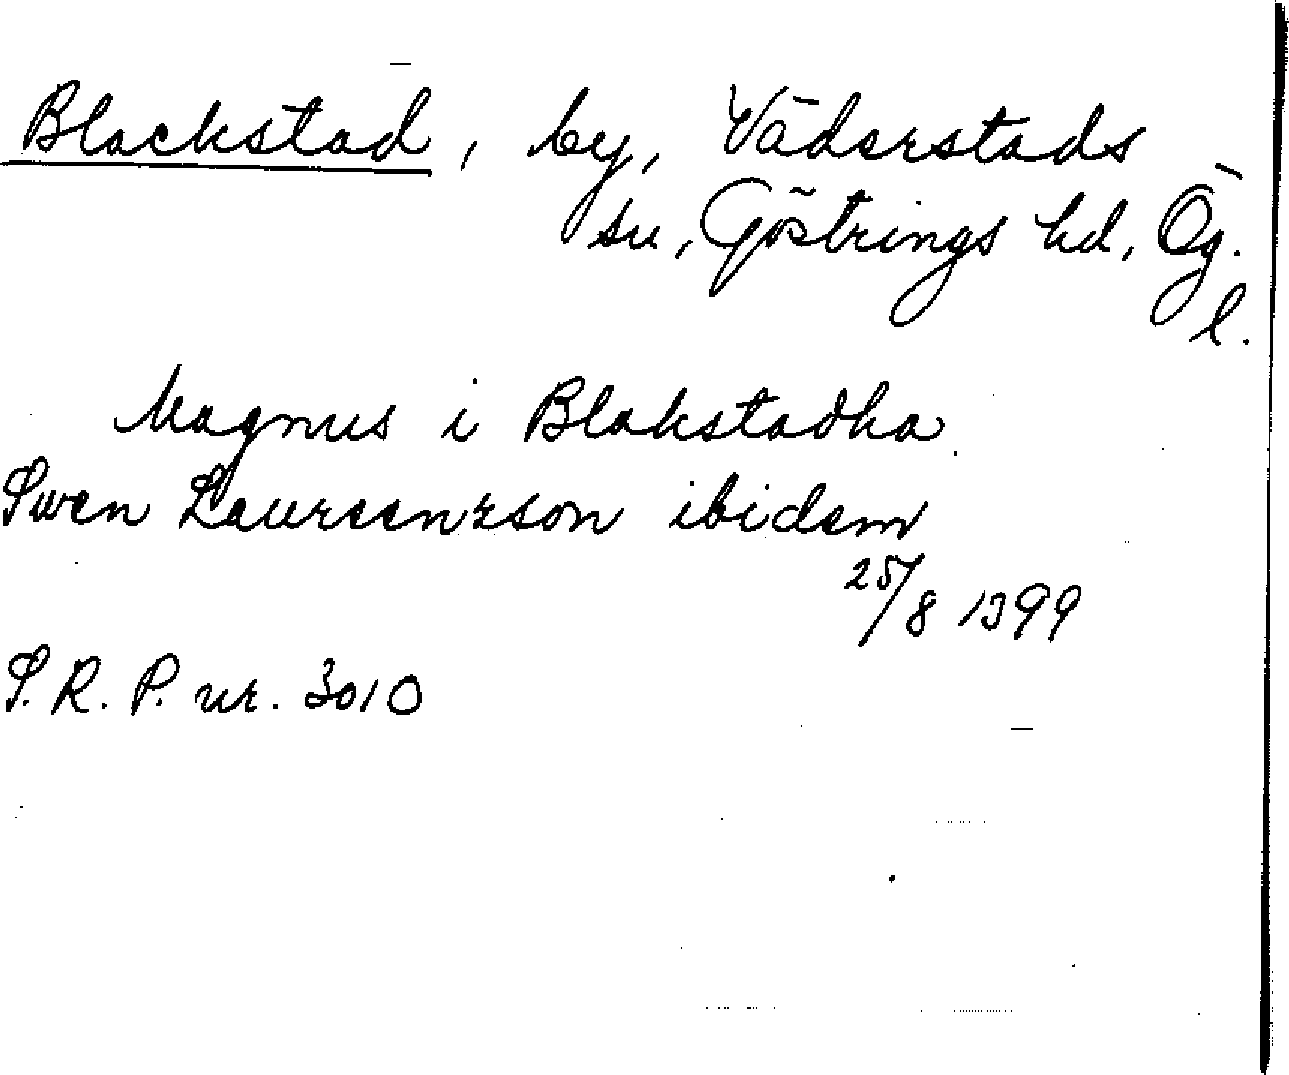 Blackstad, by, Väderstads
sn, Göstrings hd, Ög.
l.
Magnus i Blakstadha
Swen Laurenzson ibidem
25/8 1399
S.R.P. nr. 3010